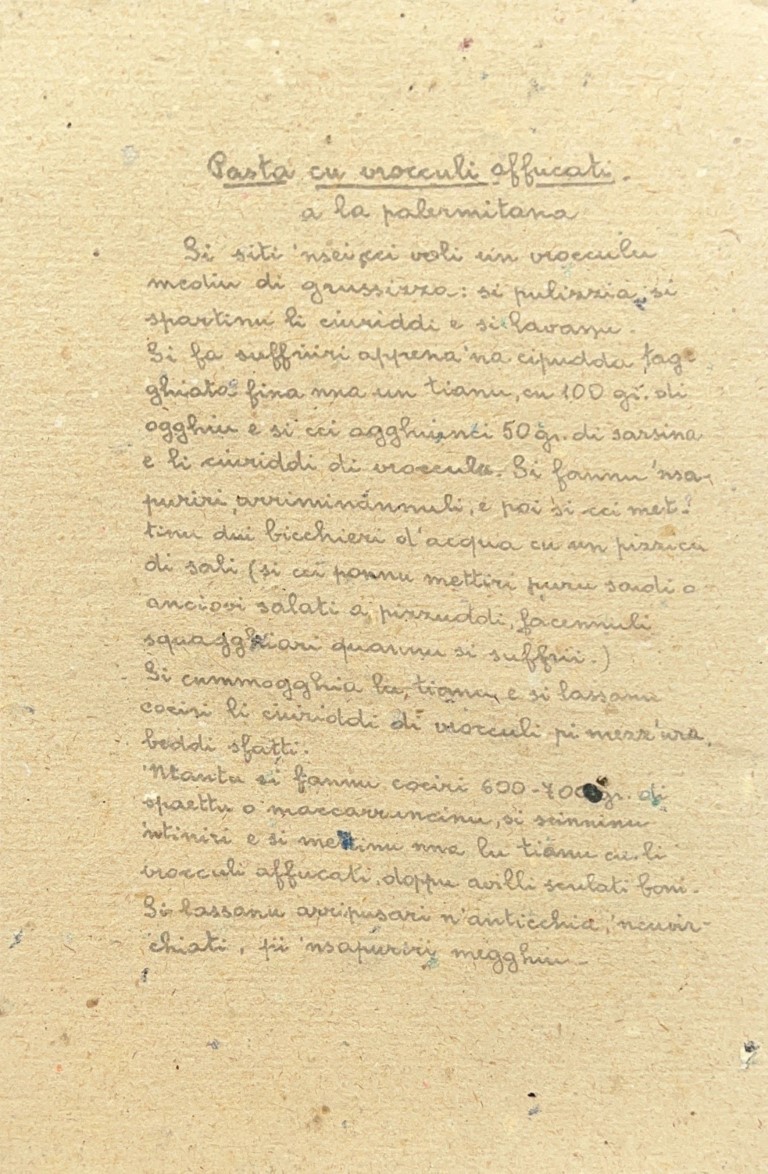 Pasta cu vrocculi affucati.
a la palermitana
Si siti 'nsei, cci voli un vrocculu
mediu di grussizza: si pulizzia, si
spartinu li ciuriddi e si lavanu.
Si fa suffriiri appena 'na cipudda tag-
ghiata fina nna un tianu, cu 100 gr. di
ogghiu e si cci agghiunci 50 gr. di sarsina
e li ciuriddi di vrocculu. Si fannu 'nsa-
puriri, arriminànnuli, e poi si cci met-
tinu dui bicchieri d'acqua cu un pizzicu
di sali (si cci ponnu mettiri puru sardi o
anciovi salati a pizzuddi, facennuli
squagghiari quannu si suffrii.)
Si cummogghia lu tianu e si lassanu
cociri li ciuriddi di vrocculi pi mezz'ura,
beddi sfatti.
'Ntantu si fannu cociri 600-700 gr. di
spaettu o maccarruncinu, si scinninu
'ntiniri e si mettinu nna lu tianu cu li
vrocculi affucati, doppu avilli sculati boni.
Si lassanu arripusari n'anticchia, 'ncuvir-
chiati, pi 'nsapuriri megghiu.